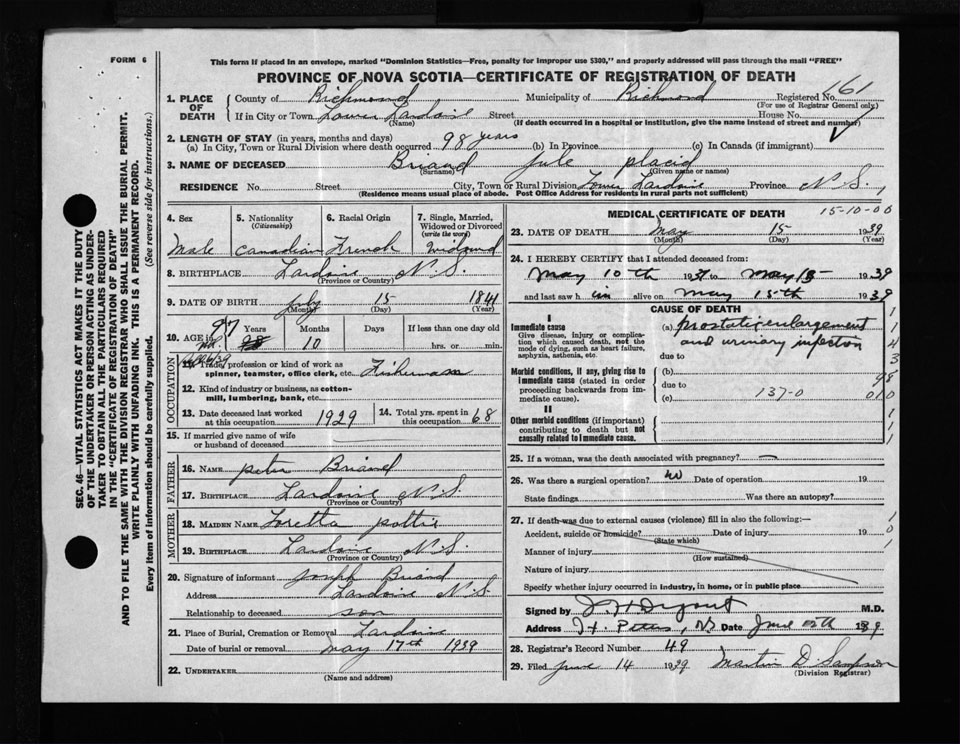 FORM 6
This form if placed in an envelope, marked "Dominion Statistics—Free, penalty for improper use $300," and properly addressed will pass through the mail "FREE"
PROVINCE OF NOVA SCOTIA—CERTIFICATE OF REGISTRATION OF DEATH
1. PLACE OF DEATH
County of Richmond Municipality of Richmond Registered No. 61
(For use of Registrar General only)
If in City or Town Lower Lardoise Street House No.
(Name) (If death occurred in a hospital or institution, give the name instead of street and number)
2. LENGTH OF STAY (in years, months and days)
(a) In City, Town or Rural Division where death occurred 98 years (b) In Province (c) In Canada (if immigrant)
3. NAME OF DECEASED Briand Jule placid
(Surname) (Given name or names)
RESIDENCE No. Street City, Town or Rural Division Lower Lardoise Province N.S.
(Residence means usual place of abode. Post Office Address for residents in rural parts not sufficient)
4. Sex Male
5. Nationality (Citizenship) Canadian
6. Racial Origin French
7. Single, Married, Widowed or Divorced (write the word) Widowed
8. BIRTHPLACE Lardoise N.S.
(Province or Country)
9. DATE OF BIRTH July 15 1841
(Month) (Day) (Year)
10. AGE in 97 98 Years Months 10 Days If less than one day old hrs. or min.
OCCUPATION
11. Trade, profession or kind of work as spinner, teamster, office clerk, etc. Fisherman
12. Kind of industry or business, as cotton-mill, lumbering, bank, etc.
13. Date deceased last worked at this occupation 1929
14. Total yrs. spent in this occupation 68
15. If married give name of wife or husband of deceased
FATHER
16. NAME peter Briand
17. BIRTHPLACE Lardoise N.S.
(Province or Country)
MOTHER
18. MAIDEN NAME Loretta pottie
19. BIRTHPLACE Lardoise N.S.
(Province or Country)
20. Signature of informant Joseph Briand
Address Lardoise N.S.
Relationship to deceased son
21. Place of Burial, Cremation or Removal Lardoise
Date of burial or removal May 17th 1939
22. UNDERTAKER
(Name and address)
MEDICAL CERTIFICATE OF DEATH
15-10-00
23. DATE OF DEATH May 15 1939
(Month) (Day) (Year)
24. I HEREBY CERTIFY that I attended deceased from:
May 10th 1937 to May 15 1939
and last saw him alive on May 15th 1939
CAUSE OF DEATH
I
Immediate cause
Give disease, injury or complication which caused death, not the mode of dying, such as heart failure, asphyxia, asthenia, etc.
(a) prostatic enlargement and urinary infection
due to
Morbid conditions, if any, giving rise to immediate cause (stated in order proceeding backwards from immediate cause).
(b)
due to
(c) 137-0
II
Other morbid conditions (if important) contributing to death but not causally related to immediate cause.
1
1
4
3
98
010
1
1
1
25. If a woman, was the death associated with pregnancy? —
26. Was there a surgical operation? no Date of operation 19
State findings Was there an autopsy?
27. If death was due to external causes (violence) fill in also the following:—
Accident, suicide or homicide? Date of injury 19
(State which)
Manner of injury
(How sustained)
Nature of injury
Specify whether injury occurred in industry, in home, or in public place
1
0
1
Signed by M.D.
Address St. Peters, NS Date June 1939
28. Registrar's Record Number 49
29. Filed June 14 1939 Martin D Sampson
(Division Registrar)
SEC. 46—VITAL STATISTICS ACT MAKES IT THE DUTY
OF THE UNDERTAKER OR PERSON ACTING AS UNDERTAKER TO OBTAIN ALL THE PARTICULARS REQUIRED
IN THE "CERTIFICATE OF REGISTRATION OF DEATH"
AND TO FILE THE SAME WITH THE DIVISION REGISTRAR WHO SHALL ISSUE THE BURIAL PERMIT.
WRITE PLAINLY WITH UNFADING INK. THIS IS A PERMANENT RECORD.
Every item of information should be carefully supplied. (See reverse side for instructions.)